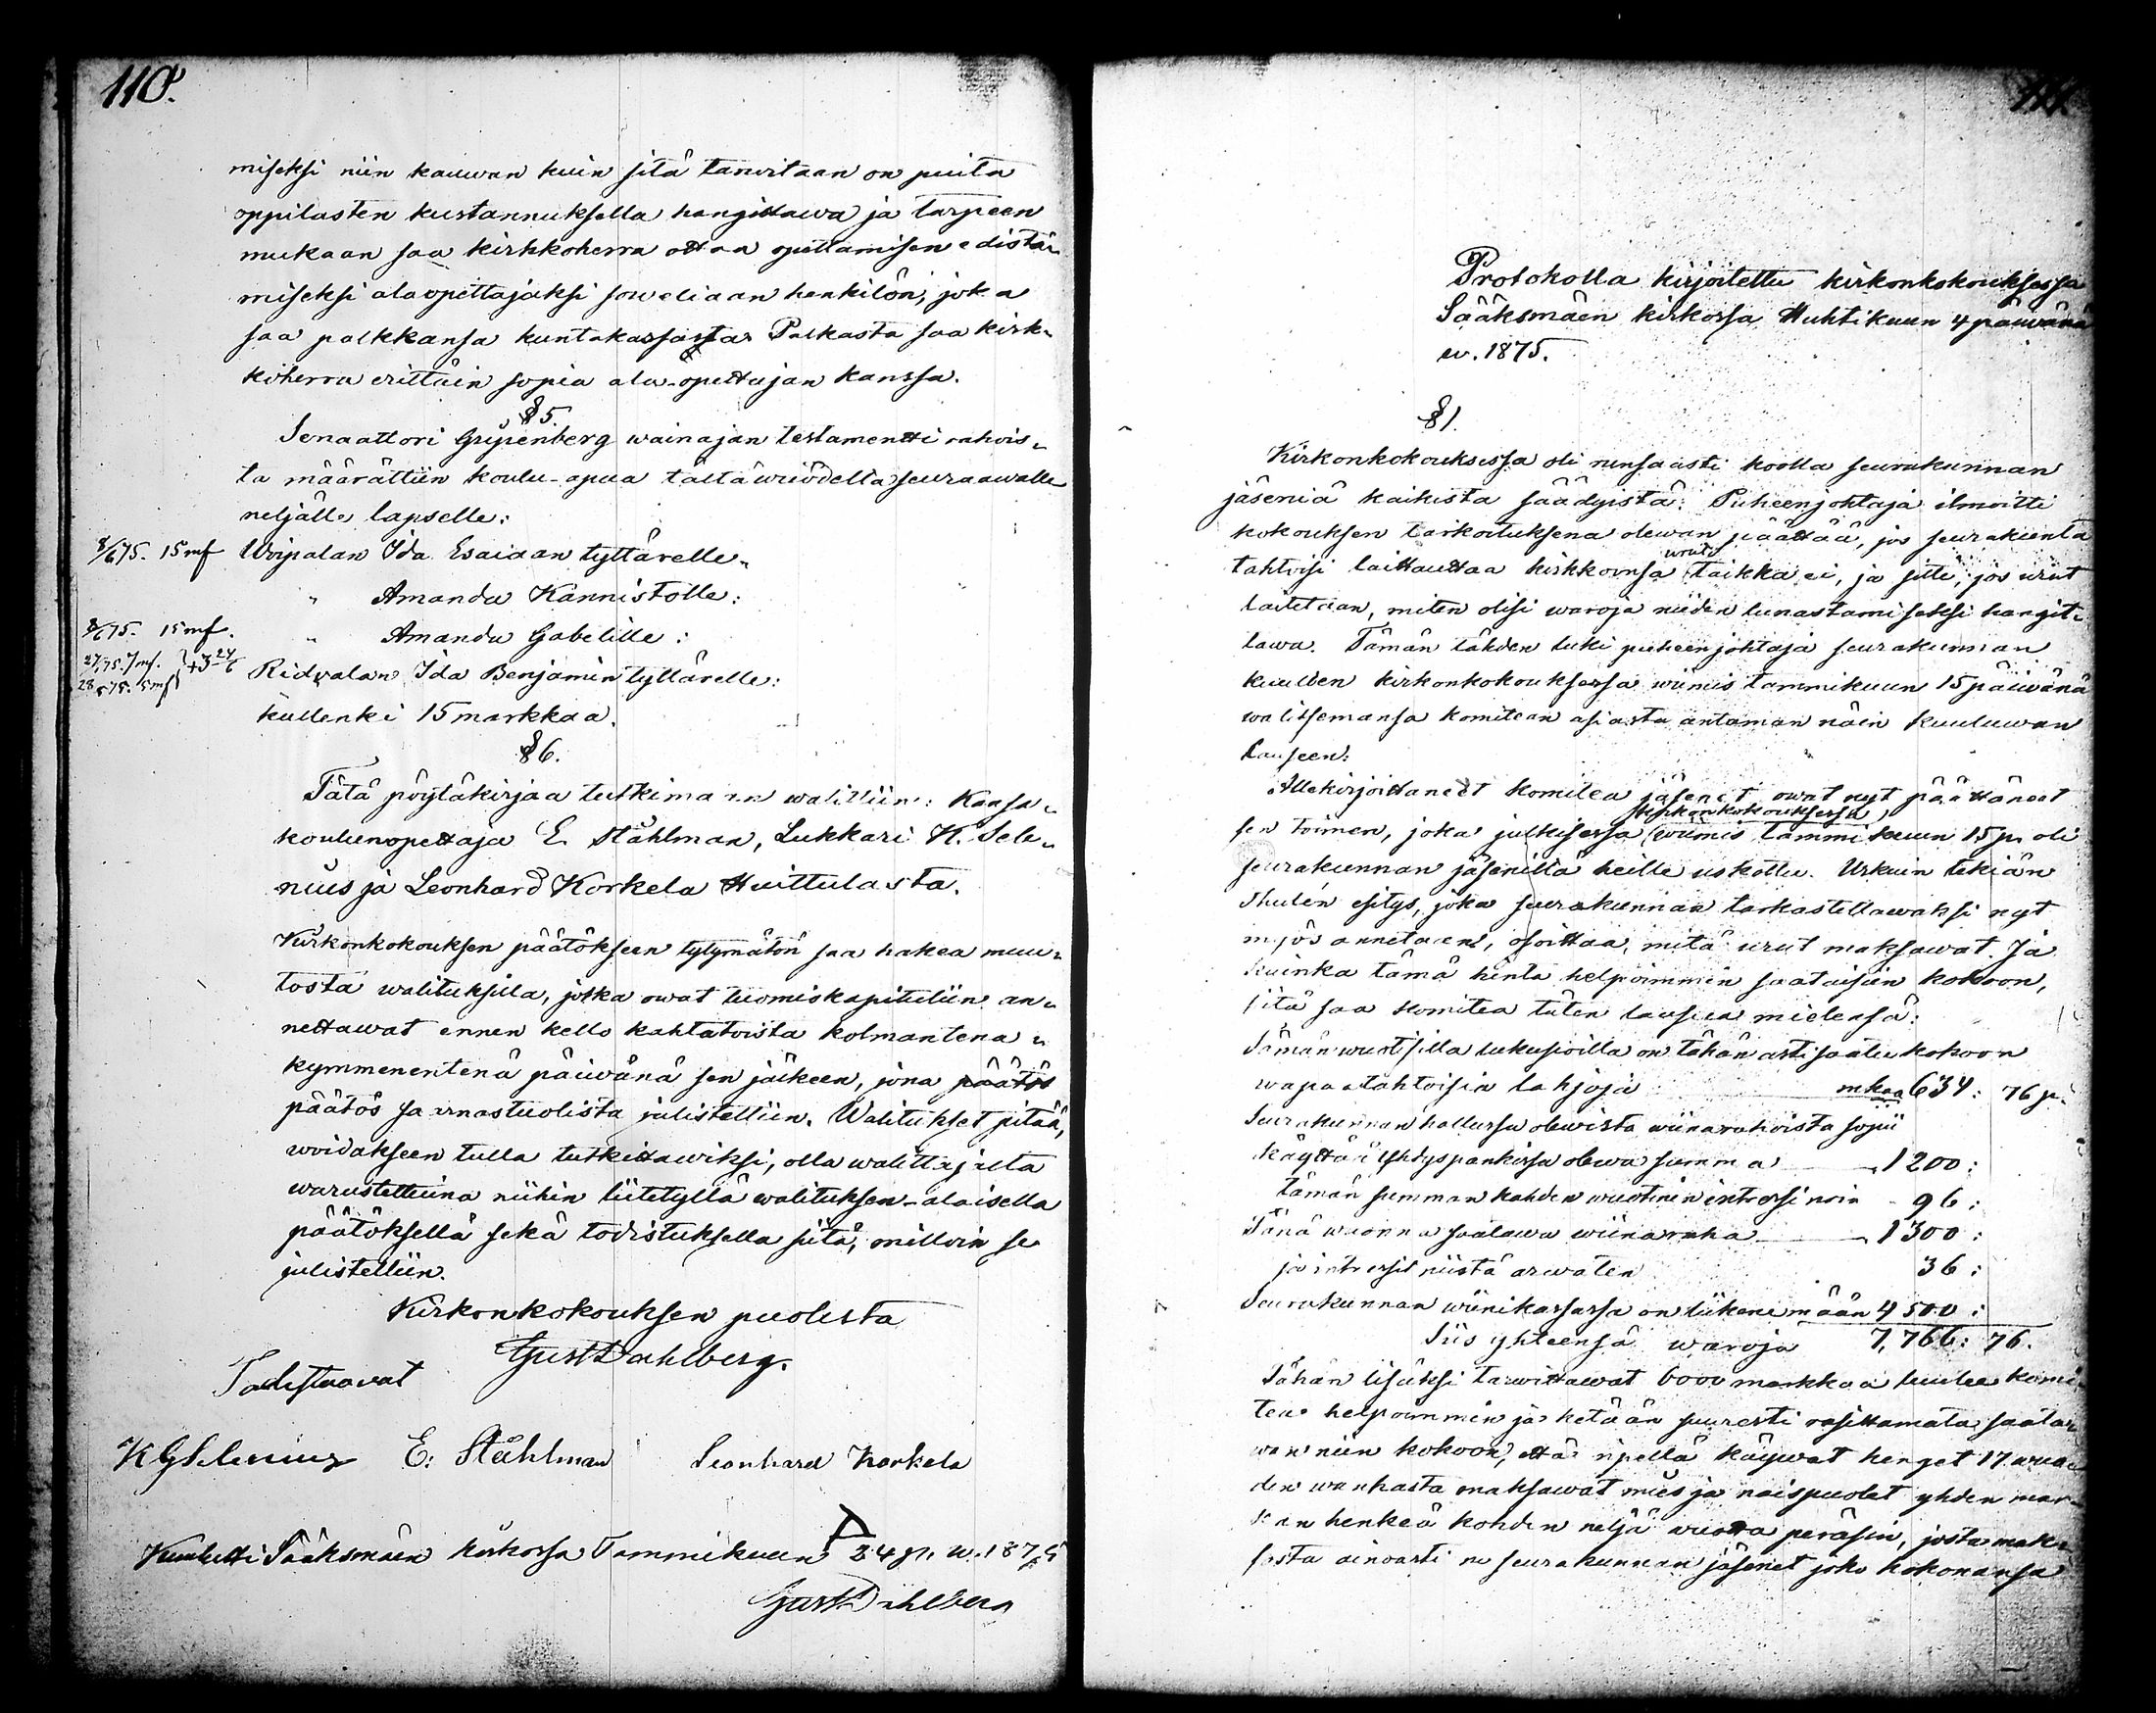 110.
miseksi niin kauwan kuin sitä tarwitaan on puita
oppilasten kustannuksella hangittawa ja tarpeen
mukaan saa kirkkoherra ottaa opettamisen edistä-
miseksi alaopettajaksi soweliaan henkilön, joka
saa palkkansa kuntakassasta. Palkasta saa kirk-
koherra erittäin sopia ala-opettajan kanssa.
§ 5.
Senaattori Gripenberg wainajan testamentti rahois-
ta määrättiin koulu-apua tältä wuodelta seuraawalle
neljälle lapselle:
8/6 75. 15 mf Woipalan Ida Esaiaan tyttärelle.
" Amanda Kännistölle:
8/6 75. 15 mf. " Amanda Gabelille:
Ridvalan Ida Benjamin tyttärelle:
kullenki 15 markkaa.
§ 6.
Tätä pöytäkirjaa tutkimaan walittiin: Kansa-
koulunopettaja E. Ståhlman, Lukkari K. Sele-
nius ja Leonhard Korkela Huittulasta.
Kirkonkokouksen päätökseen tytymätön saa hakea muu-
tosta walituksila, jotka owat tuomiokapituliin an-
nettawat ennen kello kahtatoista kolmantena-
kymmenentenä päiwänä sen jälkeen, jona päätös
päätös saarnastuolista julistettiin. Walitukset pitää,
woidakseen tulla tutkittawiksi, olla walittajalta
warustettuina niihin liitetyllä walituksen-alaisella
päätöksellä sekä todistuksella siitä, milloin se
julistettiin.
Kirkonkokouksen puolesta
Gust Dahlberg.
Todistaavat
K G Selenius E: Ståhlman Leonhard Korkela
Kuulutti Sääksmäen kirkossa Tammikuun 24 p. w. 1875
Gust Dahlberg
111.
Protokolla kirjoitettu kirkonkokouksessa
Sääksmäen kirkossa Huhtikuun 4 päiwänä
w. 1875.
§ 1.
Kirkonkokouksessa oli runsaasti koolla seurakunnan
jäseniä kaikista säädyistä. Puheenjohtaja ilmoitti
kokouksen tarkoituksena olewan päättää, jos seurakunta
tahtoisi laittauttaa kirkkoonsa urut taikka ei, ja sitte, jos urut
laitetaan, miten olisi waroja niiden lunastamiseksi hangit-
tawa. Tämän tähden luki puheenjohtaja seurakunnan
kuullen kirkonkokouksessa wiimis tammikuun 15 päiwänä
walitsemansa komitean asiasta antaman näin kuuluwan
lauseen:
Allekirjoittaneet komitea jäsenet owat nyt päättäneet
sen toimen, joka julkisessa kirkonkokouksessa wiimis tammikuun 15 p. oli
seurakunnan jäseniltä heille uskottu. Urkuin tekiän
Thulén esitys, joka seurakunnan tarkastettawaksi nyt
myös annetaan, osoittaa, mitä urut maksawat. Ja
kuinka tämä hinta helpoimmin saataisiin kokoon,
sitä saa komitea täten lausua mielensä:
Tämänwuotisilla lukusioilla on tähän asti saatu kokoon
wapaatahtoisia lahjoja mkaa 634: 76 p.
Seurakunnan hallussa olewista wiinarahoista sopii
käyttää Yhdyspankissa olewa summa 1200:
tämän summan kahden wuotinen intressi noin 96:
Tänä wuonna saatawa wiinaraha 1300:
ja intressit niistä arwaten 36:
Seurakunnan wiinikassassa on liikenemään 4500:
Siis yhteensä waroja 7,766: 76.
Tähän lisäksi tarwittawat 6000 markkaa luulee komi-
tea helpoimmin ja ketään suuresti rasittamata saata-
wan niin kokoon, että ripellä käywat henget 17 wuo-
den wanhasta maksawat mies ja naispuolet yhden mar-
kan henkeä kohden neljä wuotta peräsin, josta mak-
sosta ainoasti ne seurakunnan jäsenet joko kokonansa